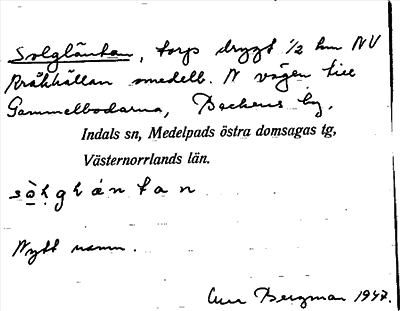 Solgläntan, torp drygt ½ km NV
Kråkhällan omedelb. N vägen till
Gammelbodarna, Backens by,
Indals sn, Medelpads östra domsagas tg,
Västernorrlands län.
Nytt namn.
Bergman 1947.